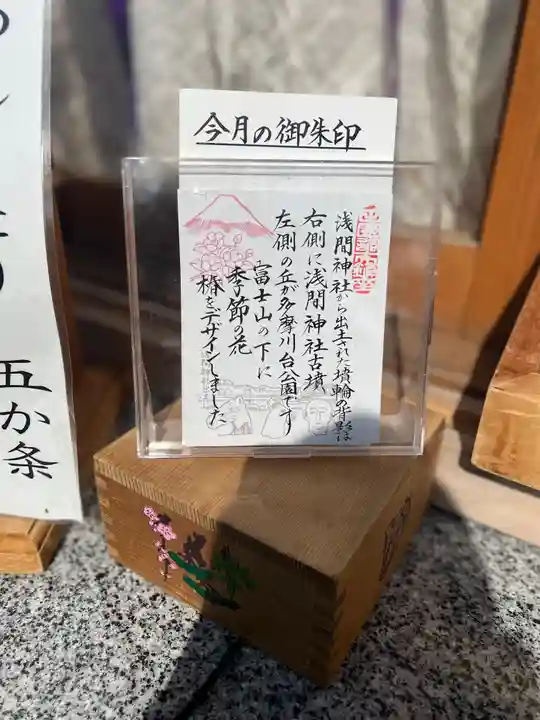 今月の御朱印
浅間神社から出土された埴輪の背景は
右側に浅間神社古墳
左側の丘が多摩川台公園です
富士山の下に
季節の花
椿をデザインしました
五か条